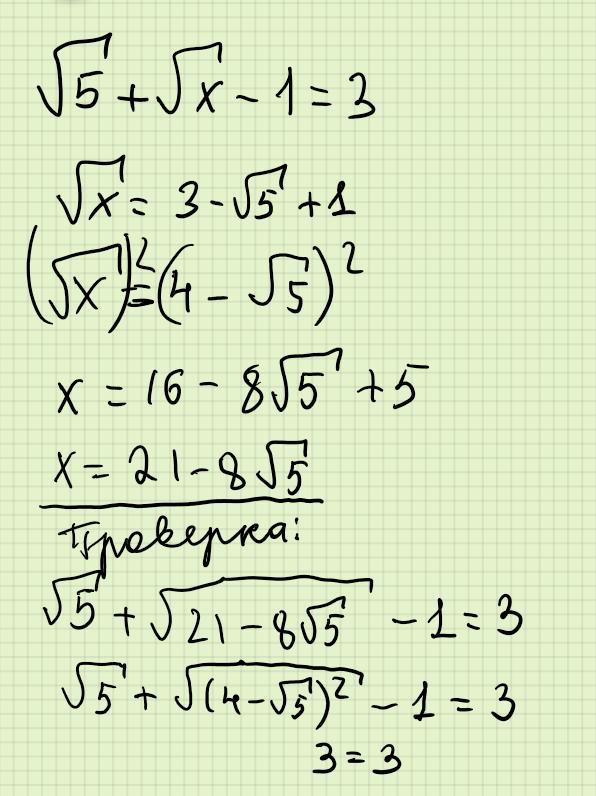 √5 + √x - 1 = 3
√x = 3 - √5 + 1
(√x)² = (4 - √5)²
x = 16 - 8√5 + 5
x = 21 - 8√5
Проверка:
√5 + √(21 - 8√5) - 1 = 3
√5 + √((4 - √5)²) - 1 = 3
3 = 3